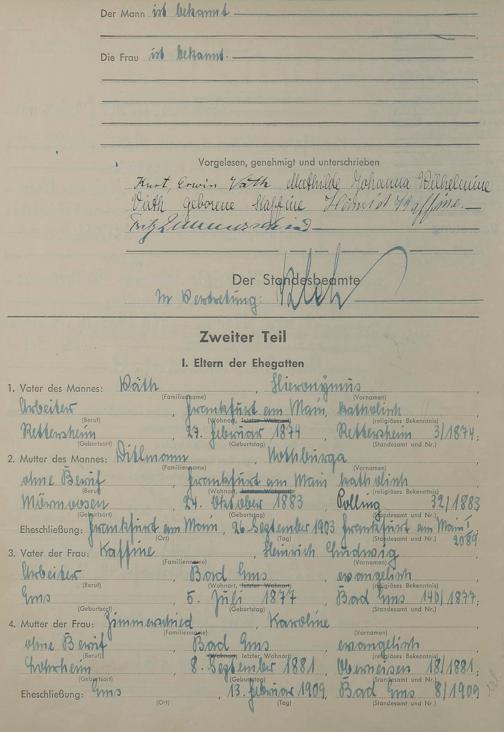 Der Mann ist bekannt
Die Frau ist bekannt.
Vorgelesen, genehmigt und unterschrieben
Kurt, Erwin Väth Mathilde Johanna Wilhelmine
Väth geborene Kaffine Heinrich Kaffine.
Fritz Zimmerschied
Der Standesbeamte
In Vertretung:
Zweiter Teil
I. Eltern der Ehegatten
1. Vater des Mannes: Väth, Hieronymus
(Familienname) (Vornamen)
Arbeiter, Frankfurt am Main, katholisch
(Beruf) (Wohnort, letzter Wohnort) (religiöses Bekenntnis)
Rettersheim, 27. Februar 1874, Rettersheim 3/1874;
(Geburtsort) (Geburtstag) (Standesamt und Nr.)
2. Mutter des Mannes: Dittmann, Nothburga
(Familienname) (Vornamen)
ohne Beruf, Frankfurt am Main katholisch
(Beruf) (Wohnort, letzter Wohnort) (religiöses Bekenntnis)
24. Oktober 1883, Polling 32/1883
(Geburtsort) (Geburtstag) (Standesamt und Nr.)
Eheschließung: Frankfurt am Main, 26. September 1903 Frankfurt am Main I
2089
(Ort) (Tag) (Standesamt und Nr.)
3. Vater der Frau: Kaffine, Heinrich Ludwig
(Familienname) (Vornamen)
Arbeiter, Bad Ems, evangelisch
(Beruf) (Wohnort, letzter Wohnort) (religiöses Bekenntnis)
Ems, 5. Juli 1877, Bad Ems 140/1877;
(Geburtsort) (Geburtstag) (Standesamt und Nr.)
4. Mutter der Frau: Zimmerschied, Karoline
(Familienname) (Vornamen)
ohne Beruf, Bad Ems, evangelisch
(Beruf) (Wohnort, letzter Wohnort) (religiöses Bekenntnis)
Lohrheim, 8. September 1881, Oberneisen 18/1881;
(Geburtsort) (Geburtstag) (Standesamt und Nr.)
Eheschließung: Ems, 13. Februar 1909, Bad Ems 8/1909
(Ort) (Tag) (Standesamt und Nr.)